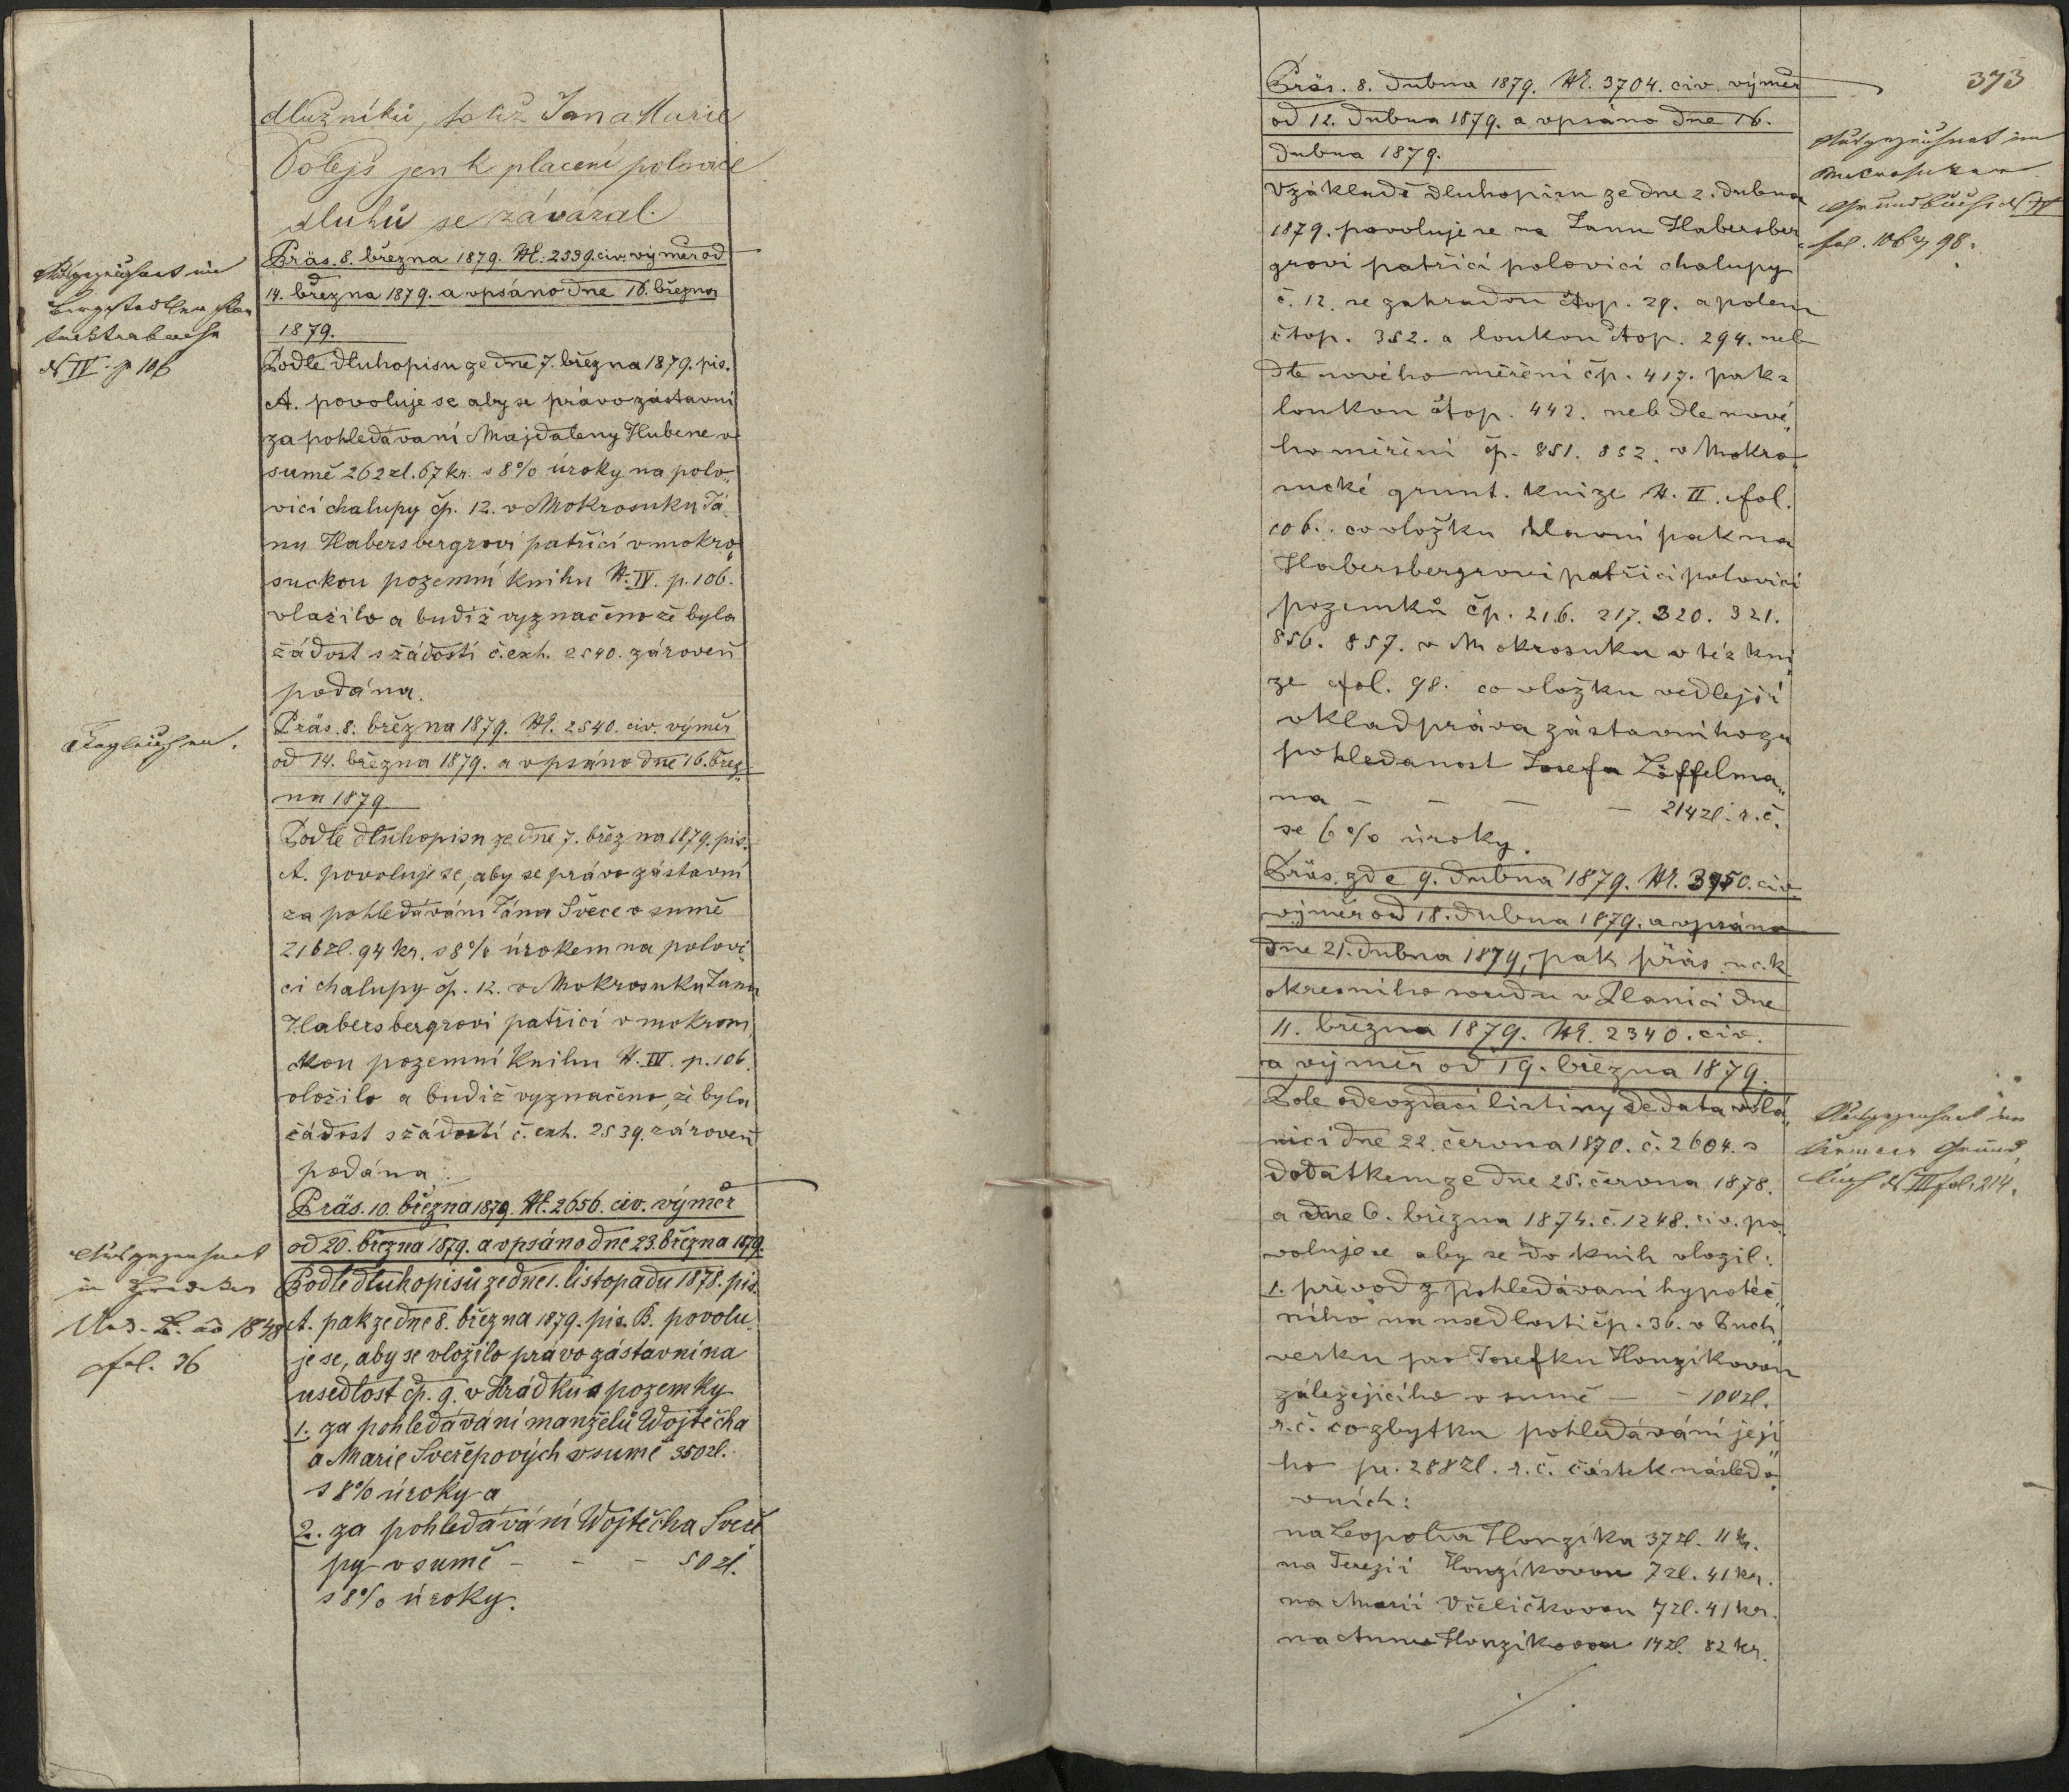 dlužníků, totiž Jan a Marie
Polejš jen k placení polovice
dluhů se závázal.
Präs. 8. března 1879. N. 2539. civ. výměr od
14. března 1879. a vpsáno dne 16. března
1879.
Podle dluhopisu ze dne 7. března 1879. pis.
A. povoluje se aby se právo zástavní
za pohledávaní Majdaleny Hubene v
sumě 262 zl. 67 kr. s 8% úroky na polo„
vici chalupy čp. 12. v Mokrosuku Já„
nu Habersbergrovi patřící v mokro„
suckou pozemní knihu N. IV. p. 106.
vložilo a budiž vyznačeno že byla
žádost s žádostí č. exh. 2540. zároveň
podána.
Präs. 8. března 1879. N. 2540. civ. výměr
od 14. března 1879. a vpsáno dne 16. břez„
na 1879
Podle dluhopisu ze dne 7. března 1879. pis.
A. povoluje se, aby se právo zástavní
za pohledávání Jána Švece v sumě
216 zl. 94 kr. s 8% úrokem na polovi„
ci chalupy čp. 12. v Mokrosuku Janu
Habersbergrovi patřící v mokrosu„
ckou pozemní knihu N. IV. p. 106.
vložilo a budiž vyznačeno, že byla
žádost s žádostí č. exh. 2539. zároveň
podána.
Präs. 10. března 1879. N. 2656. civ. výměr
od 20. března 1879. a vpsáno dne 23. března 1879.
Podle dluhopisů ze dne 1. listopadu 1878. pis.
A. pak ze dne 8. března 1879. pis. B. povolu„
je se, aby se vložilo právo zástavní na
usedlost čp. 9. v Hrádku a pozemky
1. za pohledávání manželů Wojtěcha
a Marie Sveřepových v sumě 350 zl.
s 8% úroky a
2. za pohledávání Wojtěcha Sveře
py v sumě - - - 50 zl.
s 8% úroky.
N IV. p 106
fol. 36
373
Präs. 8. dubna 1879. N. 3704. civ. výměr
od 12. dubna 1879. a vpsáno dne 16.
dubna 1879.
V základě dluhopisu ze dne 2. dubna
1879. povoluje se na Janu Habersber„
grovi patřící polovici chalupy
č. 12. se zahradou čtop. 29. a polem
čtop. 352. a loukou čtop. 294. neb
dle nového měření čp. 417. pak
loukou čtop. 442. neb dle nové„
ho měření čp. 851. 852. v Mokro„
sucké grunt. knize N. II. fol.
106. co vložku hlavní pak na
Habersbergrovi patřící polovici
pozemků čp. 216. 217. 320. 321.
856. 857. v Mokrosuku v též kni„
ze fol. 98. co vložku vedlejší
vklad práva zástavního za
pohledanost Josefa Löffelma„
na - - - - 214 zl. r. č.
se 6% úroky.
Präs. zde 9. dubna 1879. N. 3950. civ.
výměr od 18. dubna 1879. a vpsáno
dne 21. dubna 1879, pak präs. u c. k.
okresního soudu v Planici dne
11. března 1879. N. 2340. civ.
a výměr od 19. března 1879.
Dle odevzdací listiny de dato Plá„
nici dne 22. června 1870. č. 2604. s
dodatkem ze dne 25. června 1878.
a dne 6. března 1874. č. 1248. civ. po„
voluje se aby se do knih vložil:
1. převod z pohledávaní hypoteč„
ního na usedlosti čp. 36. v Buch„
verku pro Josefku Honzíkovou
záležejícího v sumě - - 100 zl.
r. č. co zbytku pohledávání její„
ho pr. 288 zl. r. č. částek násled„
vních:
na Leopolda Honzíka 37 zl. 11 kr.
na Terezii Honzíkovou 7 zl. 41 kr.
na Marii Včeličkovou 7 zl. 41 kr.
na Annu Honzíkovou 14 zl. 82 kr.
fol. 106 & 98.
N III fol. 214.